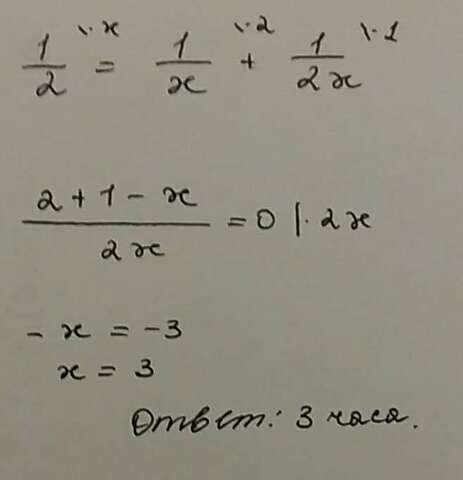 1/2 \·x = 1/x \·2 + 1/2x \·1
2 + 1 - x / 2x = 0 |· 2x
- x = -3
x = 3
Ответ: 3 часа.